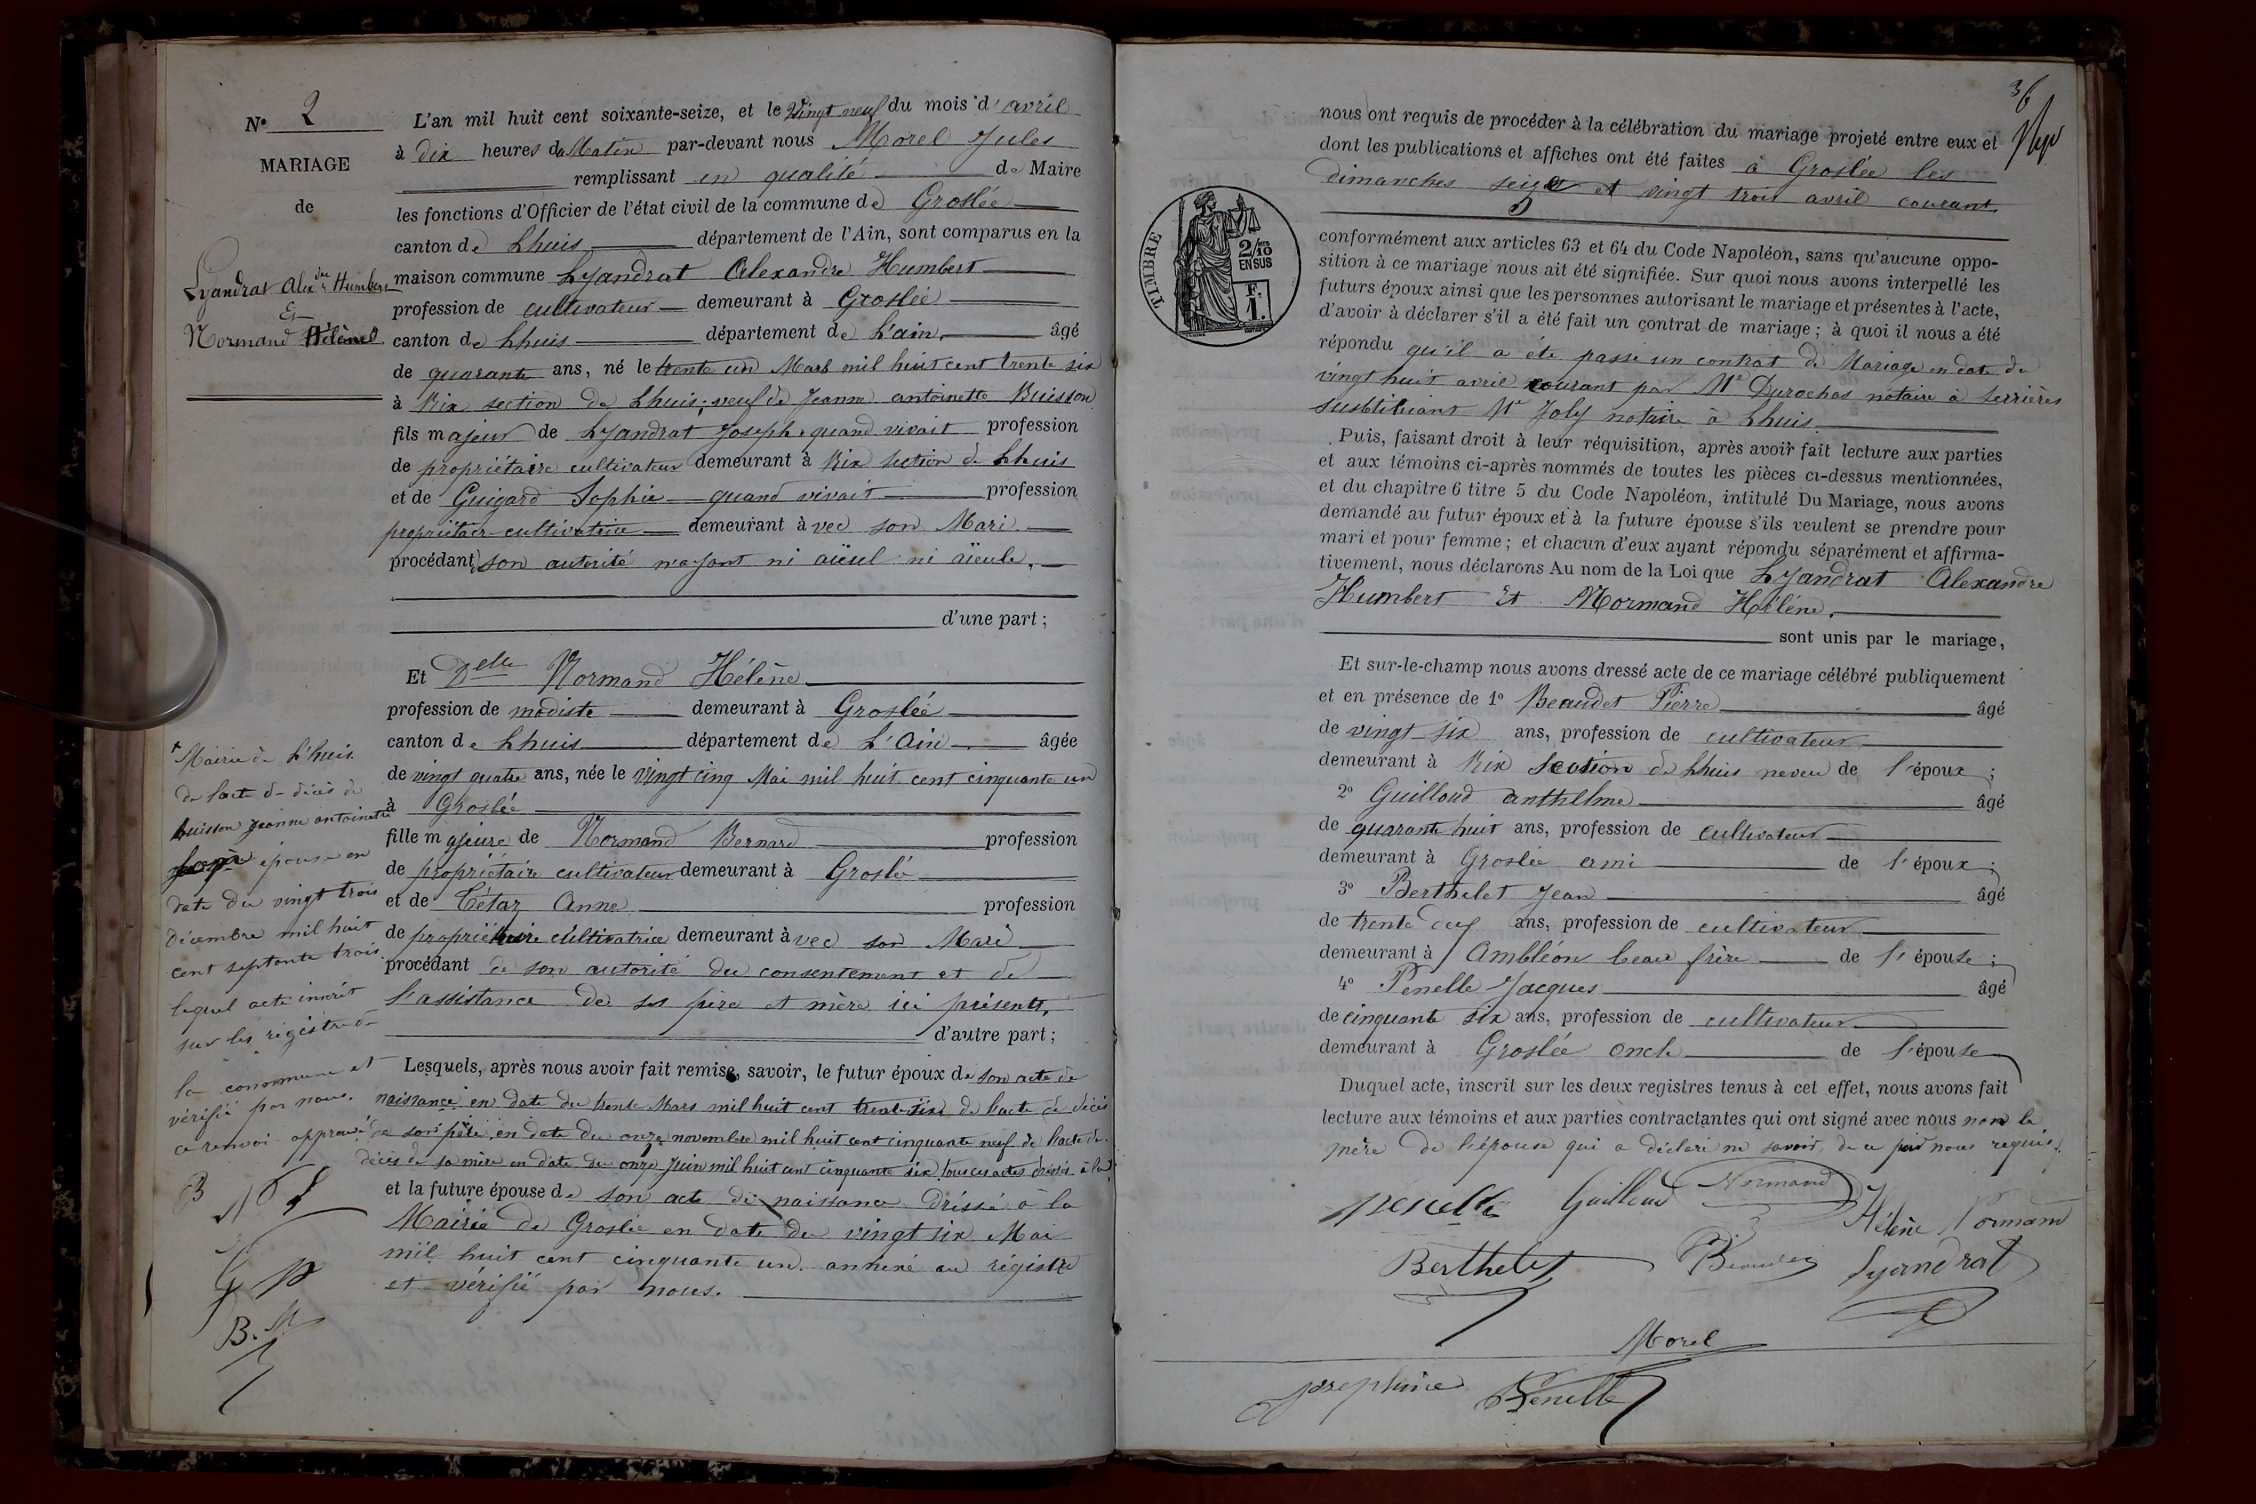 N° 2
MARIAGE
de
Lyandrat Alexdre Humbert
Et
Normand Hélène
L'an mil huit cent soixante-seize, et le Vingt neuf du mois d'avril
à dix heures du Matin par-devant nous Morel Jules
remplissant en qualité de Maire
les fonctions d'Officier de l'état civil de la commune de Groslée
canton de Lhuis département de l'Ain, sont comparus en la
maison commune Lyandrat Alexandre Humbert
profession de cultivateur demeurant à Groslée
canton de Lhuis département de L'ain, âgé
de quarante ans, né le trente un Mars mil huit cent trente six
à Rix section de Lhuis; veuf de Jeanne antoinette Buisson
fils majeur de Lyandrat Joseph quand vivait profession
de propriétaire cultivateur demeurant à Rix section de Lhuis
et de Guigard Sophie quand vivait profession
propriétair cultivatrice demeurant avec son Mari
procédant son autorité n'ayant ni aïeul ni aïeule,
d'une part;
Et Delle Normand Hélène
profession de modiste demeurant à Groslée
canton de Lhuis département de L'Ain âgée
de vingt quatre ans, née le Vingt cinq Mai mil huit cent cinquante un
à Groslée
fille majeure de Normand Bernard profession
de propriétaire cultivateur demeurant à Groslé
et de Tétaz Anne profession
de propriétaire cultivatrice demeurant avec son Mari
procédant de son autorité du consentement et de
l'assistance de ses père et mère ici présents,
d'autre part;
Lesquels, après nous avoir fait remise, savoir, le futur époux de son acte de
naissance en date du trente Mars mil huit cent trente six de l'acte de décès
de son père en date du onze novembre mil huit cent cinquante neuf de l'acte de
décès de sa mère en date du onze juin mil huit cent cinquante six tous ces actes dressés à la
et la future épouse de son acte de naissance dréssé à la
Mairie de Groslée en date du vingt six Mai
mil huit cent cinquante un annexé au régistre
et vérifié par nous.
Mairie de L'huis.
de l'acte de décès de
buisson Jeanne antoinette
épouse en
date du vingt trois
décembre mil huit
cent septante trois.
lequel acte inscrit
sur les régistre de
la commune et
vérifié par nous.
ce renvoi approuvé
B
G P
B. M
36
nous ont requis de procéder à la célébration du mariage projeté entre eux et
dont les publications et affiches ont été faites à Groslée les
dimanches seize et vingt trois avril courant
TIMBRE
2/10
EN SUS
F.
1.
conformément aux articles 63 et 64 du Code Napoléon, sans qu'aucune oppo-
sition à ce mariage nous ait été signifiée. Sur quoi nous avons interpellé les
futurs époux ainsi que les personnes autorisant le mariage et présentes à l'acte,
d'avoir à déclarer s'il a été fait un contrat de mariage; à quoi il nous a été
répondu qu'il a été passé un contrat de Mariage en date du
vingt huit avril courant par Me Durochas notaire à Serrières
susbtituant Me Joly notaire à Lhuis.
Puis, faisant droit à leur réquisition, après avoir fait lecture aux parties
et aux témoins ci-après nommés de toutes les pièces ci-dessus mentionnées,
et du chapitre 6 titre 5 du Code Napoléon, intitulé Du Mariage, nous avons
demandé au futur époux et à la future épouse s'ils veulent se prendre pour
mari et pour femme; et chacun d'eux ayant répondu séparément et affirma-
tivement, nous déclarons Au nom de la Loi que Lyandrat Alexandre
Humbert Et Normand Hélène,
sont unis par le mariage,
Et sur-le-champ nous avons dressé acte de ce mariage célébré publiquement
et en présence de 1° Beaudet Pierre âgé
de vingt six ans, profession de cultivateur
demeurant à Rix Section de Lhuis neveu de l'époux;
2° Guilloud anthelme âgé
de quarante huit ans, profession de cultivateur
demeurant à Groslée ami de l'époux;
3° Berthelet Jean âgé
de trente neuf ans, profession de cultivateur
demeurant à Ambléon beau frère de l'épouse;
4° Penelle Jacques âgé
de cinquante six ans, profession de cultivateur
demeurant à Groslée oncle de l'épouse
Duquel acte, inscrit sur les deux registres tenus à cet effet, nous avons fait
lecture aux témoins et aux parties contractantes qui ont signé avec nous non la
mère de l'épouse qui a déclaré ne savoir, de ce par nous requis.
penelle Guilloud Normand Hélène Normand
Berthelet Beaudet Lyandrat
Morel
Josephine Penelle